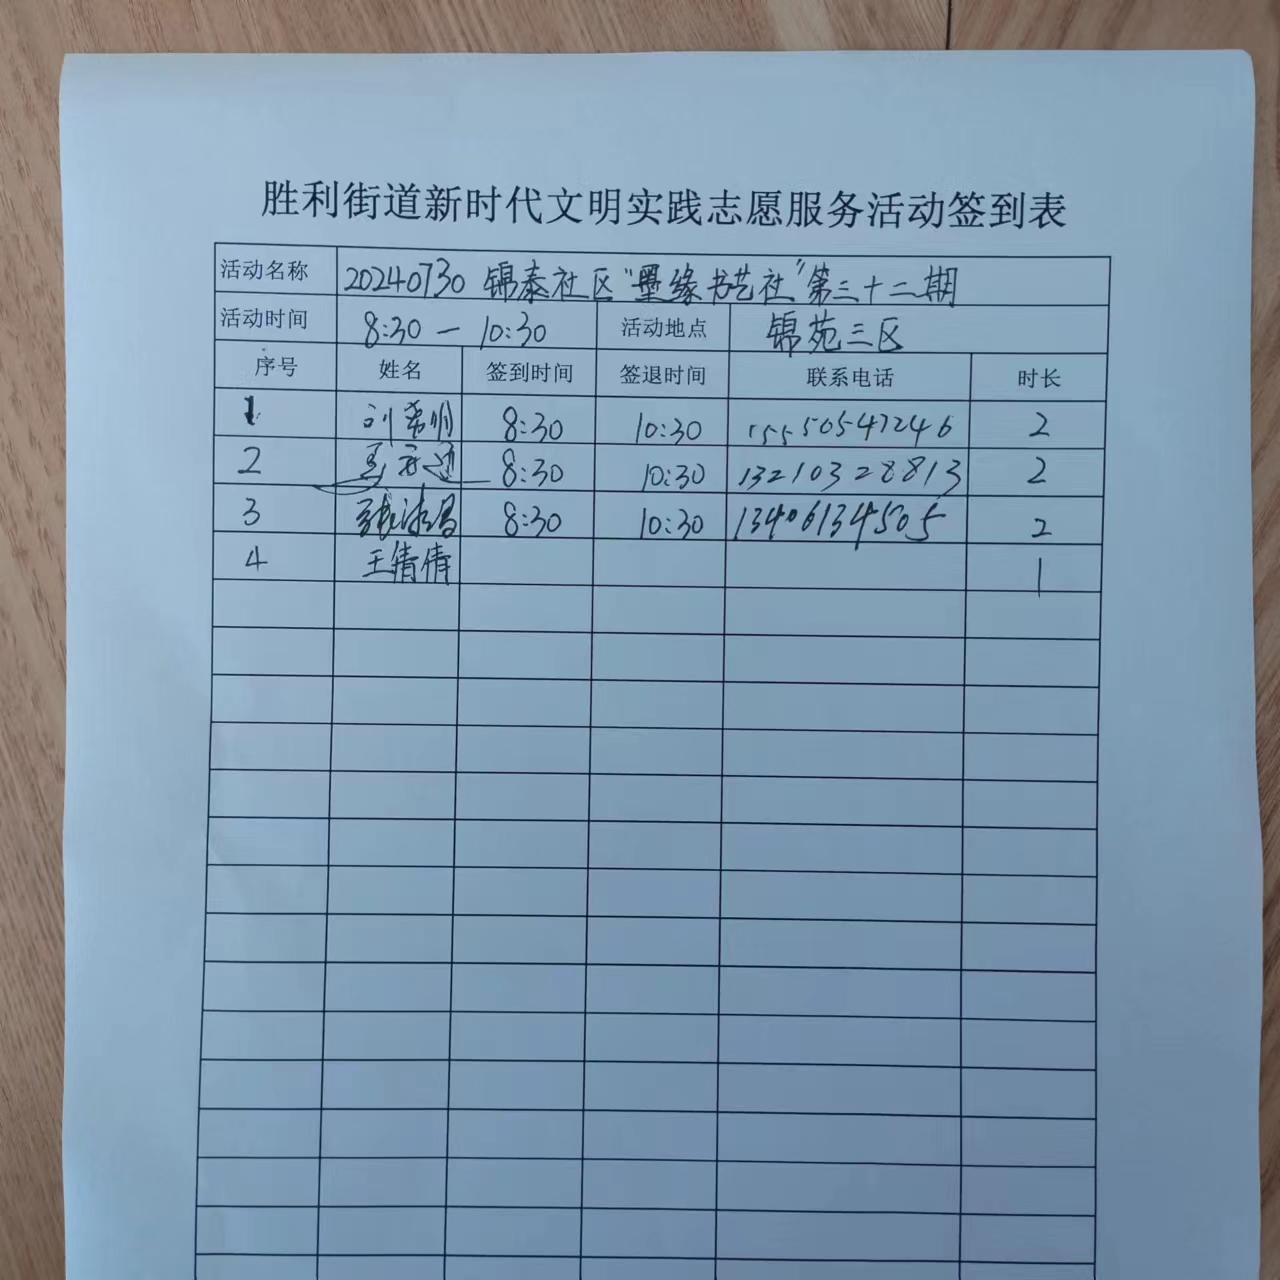 胜利街道新时代文明实践志愿服务活动签到表
活动名称 20240730 锦泰社区“墨缘书艺社”第三十二期
活动时间 8:30 — 10:30 活动地点 锦苑三区
序号 姓名 签到时间 签退时间 联系电话 时长
1 刘希明 8:30 10:30 15550547246 2
2 8:30 10:30 13210328813 2
3 8:30 10:30 13406134505 2
4 王倩倩 1